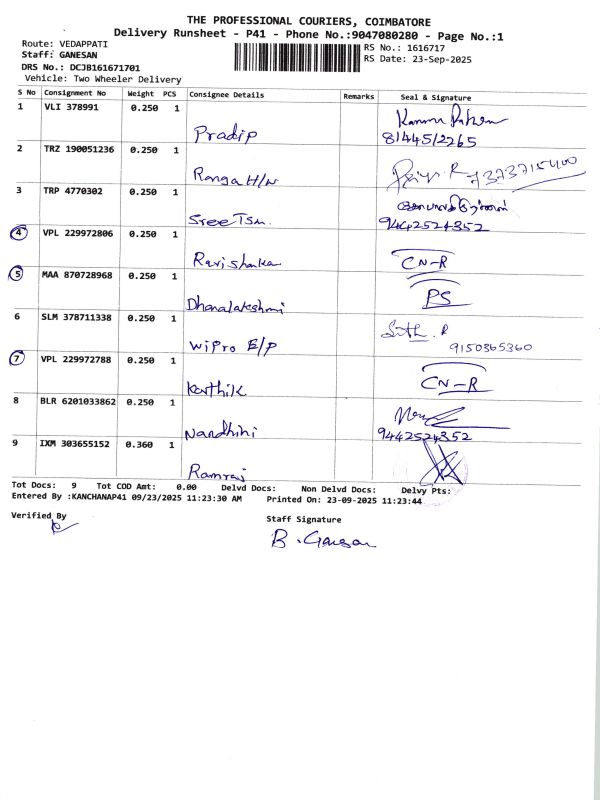 THE PROFESSIONAL COURIERS, COIMBATORE
Delivery Runsheet - P41 - Phone No.:9047080280 - Page No.:1
Route: VEDAPPATI
RS No.: 1616717
Staff: GANESAN
RS Date: 23-Sep-2025
DRS No.: DCJB161671701
Vehicle: Two Wheeler Delivery
S No Consignment No Weight PCS Consignee Details Remarks Seal & Signature
1 VLI 378991 0.250 1
Pradip 8144512265
2 TRZ 190051236 0.250 1
Ranga H/W 7373715400
3 TRP 4770302 0.250 1
Sree Tsm. 9442524352
4 VPL 229972806 0.250 1
Ravishanka CN-R
5 MAA 870728968 0.250 1
Dhanalakshmi PS
6 SLM 378711338 0.250 1
Wipro E/P 9150365360
7 VPL 229972788 0.250 1
Karthik CN-R
8 BLR 6201033862 0.250 1
Nandhini 9442524352
9 IXM 303655152 0.360 1
Ramraj
Tot Docs: 9 Tot COD Amt: 0.00 Delvd Docs: Non Delvd Docs: Delvy Pts:
Entered By :KANCHANAP41 09/23/2025 11:23:30 AM Printed On: 23-09-2025 11:23:44
Verified By
Staff Signature
B. Ganesan